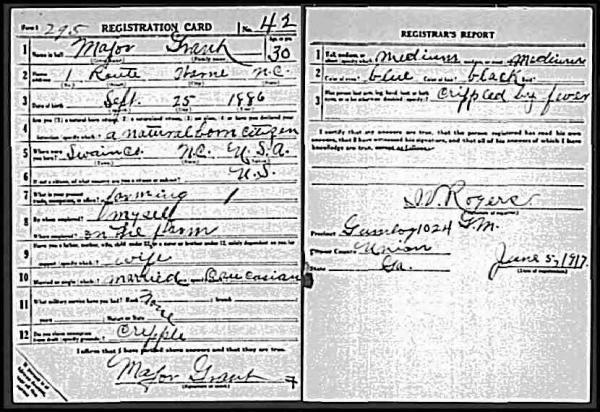 Form 1 295 REGISTRATION CARD No. 42
1 Name in full Major Grant Age, in yrs. 30
(Given name) (Family name)
2 Home address 1 Route N.C.
3 Date of birth Sept. 25 1886
4 Are you (1) a natural-born citizen, (2) a naturalized citizen, (3) an alien, (4) or have you declared your
intention (specify which)? a natural born citizen
5 Where were you born? Swain Co. N.C. U.S.A.
6 If not a citizen, of what country are you a citizen or subject? U.S.
7 What is your present trade, occupation, or office? farming 1
8 By whom employed? myself
Where employed? on the farm
9 Have you a father, mother, wife, child under 12, or a sister or brother under 12, solely dependent on you for
support (specify which)? wife
10 Married or single (which)? married Race (specify which)? Caucasian
11 What military service have you had? Rank None branch
years Nation or State
12 Do you claim exemption from draft (specify grounds)? Cripple
I affirm that I have verified above answers and that they are true.
Major Grant
(Signature or mark)
REGISTRAR'S REPORT
1 Tall, medium, or short (specify which)? medium Slender, medium, or stout (which)? Medium
2 Color of eyes? blue Color of hair? black Bald?
3 Has person lost arm, leg, hand, foot, or both eyes, or is he otherwise disabled (specify)? crippled by fever
I certify that my answers are true, that the person registered has read his own
answers, that I have witnessed his signature, and that all of his answers of which I have
knowledge are true, except as follows:
Rogers
(Signature of registrar)
Precinct Gumlog 1024 G.M.
City or County Union
State Ga.
June 5, 1917
(Date of registration)